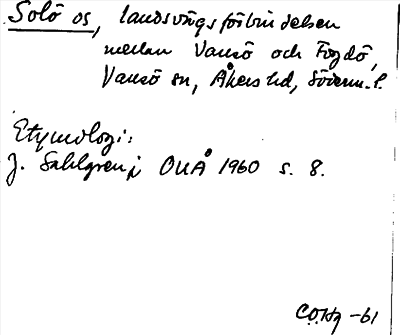 Solö os, landsvägsförbindelsen
mellan Vansö och Fogdö,
Vansö sn, Åkers hd, Söderm. l.
Etymologi:
J. Sahlgren i OUÅ 1960 s. 8.
C.O.Hg -61